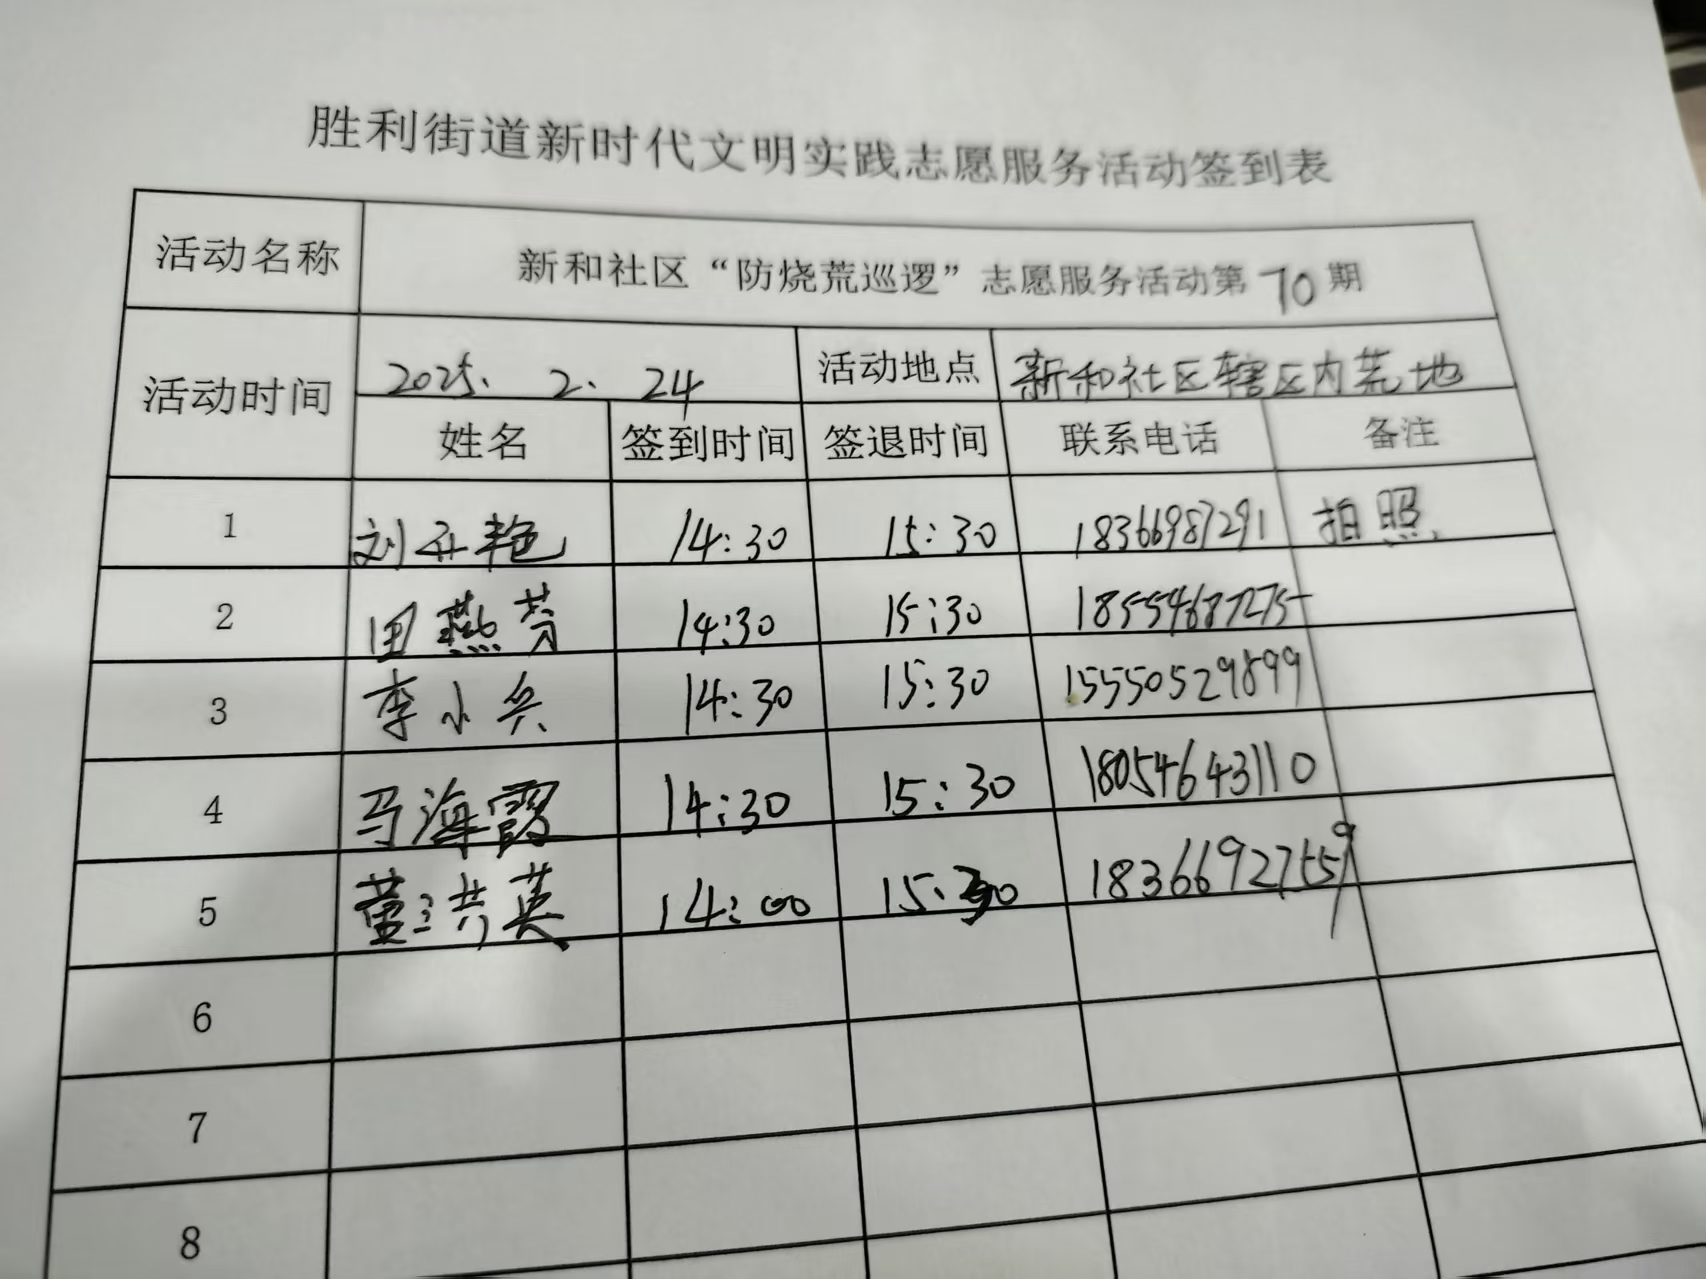 胜利街道新时代文明实践志愿服务活动签到表
活动名称 新和社区“防烧荒巡逻”志愿服务活动第70期
活动时间 2025.2.24 活动地点 新和社区辖区内荒地
姓名 签到时间 签退时间 联系电话 备注
1 刘丹艳 14:30 15:30 18366987291 拍照
2 田燕芳 14:30 15:30 18554687275
3 李小兵 14:30 15:30 15550529899
4 马海霞 14:30 15:30 18054643110
5 董洪英 14:00 15:30 18366927559
6
7
8